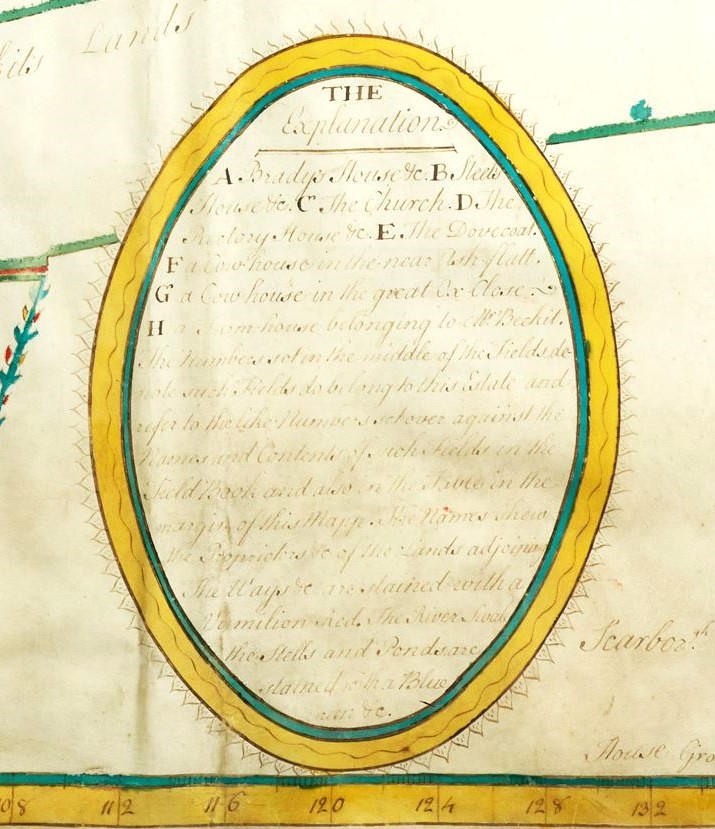 its Lands
THE
Explanation
A. Bradys House &c. B Steels
House &c. C. The Church. D. The
Rectory House &c. E. The Dovecoat.
F a Cow house in the near Ash flatt.
G a Cow house in the great Ox Close.
H a house belonging to Mr. Beckit.
The Numbers set in the middle of the Fields de
note such Fields do belong to this Estate and
refer to the like Numbers set over against the
Names and Contents of such Fields in the
Field Book and also in the Table in the
margin of this Mapp. The Names shew
the Proprietors &c of the Lands adjoining
The Ways &c are stained with a
Vermilion Red. The River Swale
the Stells and Ponds are
stained with a Blue
&c.
Scarbor.gh
House Gro
108 112 116 120 124 128 132